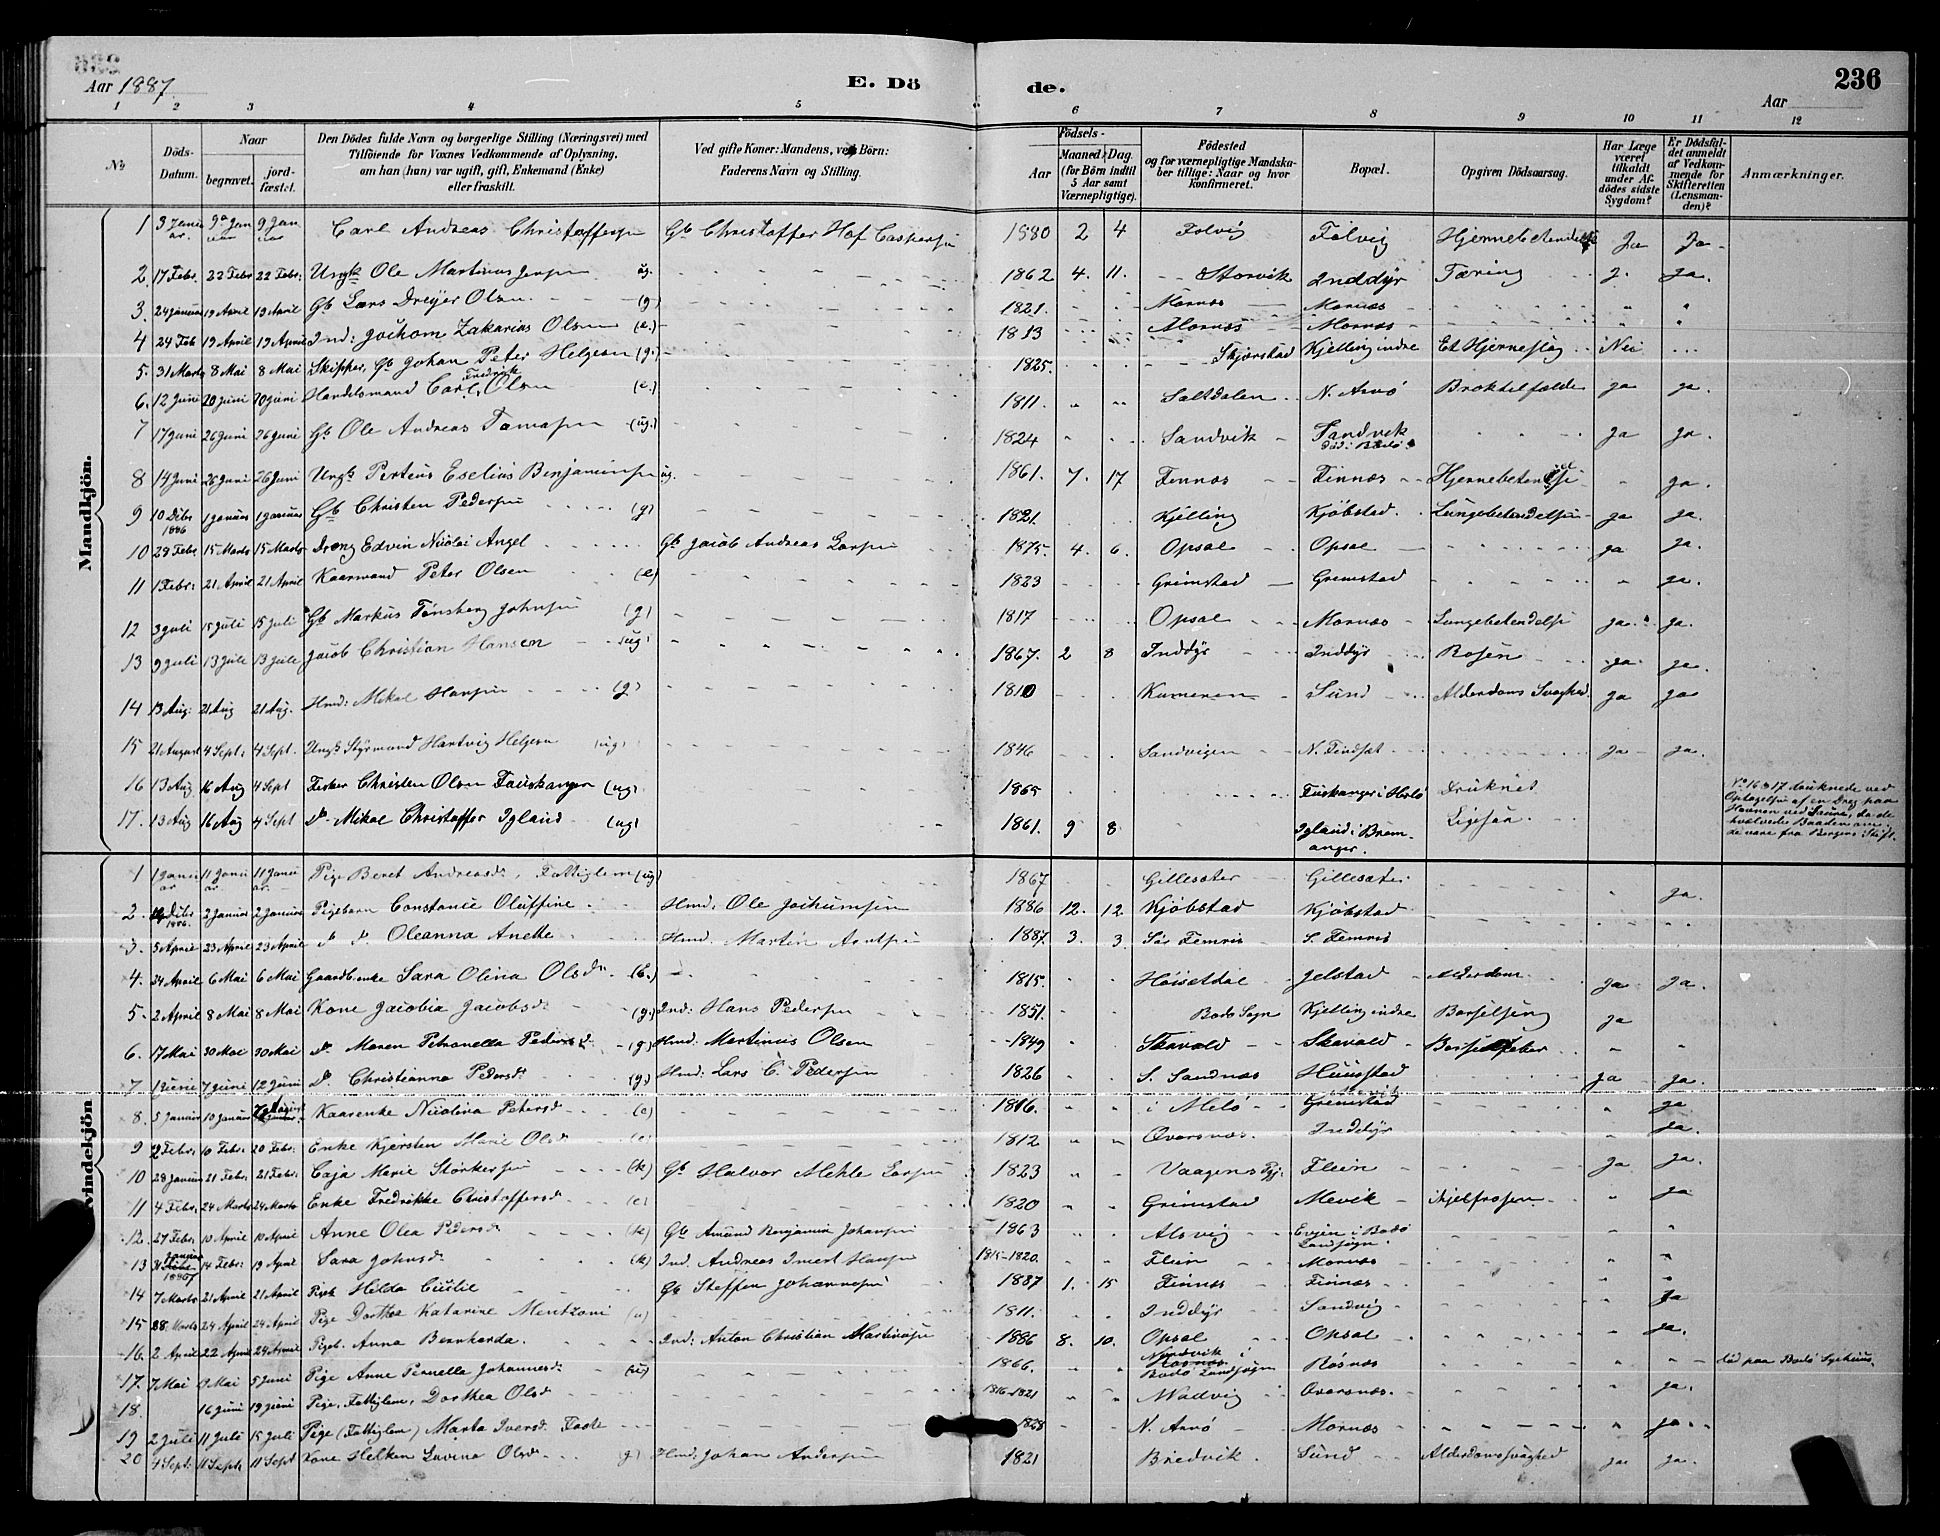 Aar 1887.
E. Dö de.
236
Aar
1 2 3 4 5 6 7 8 9 10 11 12
No
Döds-Datum.
Naar
begravet.
jordfæstet.
Den Dödes fulde Navn og borgerlige Stilling (Næringsvei) med
Tilföiende for Voxnes Vedkommende af Oplysning,
om han (hun) var ugift, gift, Enkemand (Enke)
eller fraskilt.
Ved gifte Koner: Mandens, ved Börn:
Faderens Navn og Stilling.
Födsels-
Aar
Maaned. Dag.
(for Börn indtil
5 Aar samt
Værnepligtige).
Födested
og for værnepligtige Mandska-
ber tillige: Naar og hvor
konfirmeret.
Bopæl.
Opgiven Dödsaarsag.
Har Læge
været
tilkaldt
under Af-
dödes sidste
Sygdom?
Er Dödsfal-
det anmeldt
af Vedkom-
mende for
Skifteretten
(Lensman-
den)?
Anmærkninger.
Mandkjön.
1 3 Januar 9 Januar 9 Januar Carl Andreas Christoffersen Gb Christoffer Hof Caspersen 1880 2 4 Folvig Folvig Hjernebetendelse Ja Ja
2 17 Febr. 22 Febr 22 Febr: Ungk Ole Martinus Jensen ug. 1862 4. 11. Storvik Inddyr Tæring J. Ja.
3. 24 Januar 19 April 19 April Gb Lars Dreyer Olsen (g) 1821. Mornæs Mornæs
4 24 Feb 19 April 19 April Ind: Jochom Zakarias Olsen (e.) 1813 Mornæs Mornæs
5. 31 Marts 8 Mai 8 Mai Skipper, Gb Johan Peter Helgesen (g.) 1825. Skjerstad Kjelling indre Et Hjerneslag Nei
6. 12 Juni 20 Juni 20 Juni Handelsmand Carl Fredrik Olsen (e.) 1811. Saltdalen N. Arnö Broktilfælde Ja Ja.
7 17 Juni 26 Juni 26 Juni Gb Ole Andreas Tomassen (ug.) 1824 Sandvik Sandvik död i Bodö Ja Ja.
8 14 Juni 26 Juni 26 Juni Ungk Perteus Eselius Benjaminsen ug. 1861. 7. 17 Finnæs Finnæs Hjernebetendelse Ja.
9 10 Dcbr 1886 1 Januar 1 Januar Gb Christen Pedersen (g) 1821. Kjelling Kjöbstad Lungebetendelse Ja Ja.
10 28 Febr 15 Marts 15 Marts Dreng Edvin Nicolai Angel Gb Jacob Andreas Larsen 1875. 4. 6. Opsal Opsal Ja Ja.
11 1 Febr: 21 April 21 April Kaarmand Peter Olsen (e) 1823 Grimstad Grimstad Ja.
12 3 Juli 15 Juli 15 Juli Gb Markus Tönsberg Johnsen (g) 1817 Opsal Mornæs Lungebetendelse Ja. Ja.
13 9 Juli 13 Juli 13 Juli Jacob Christian Hansen (ug) 1867. 2 8 Inddyr Inddyr Rosen Ja Ja.
14 13 Aug: 21 Aug 21 Aug. Hmd: Mikal Hansen (g) 1810 Kumeren Sund Alderdoms Svaghed Ja Ja
15 21 August 4 Sept: 4 Sept. Ungk Styrmand Hartvig Helgesen (ug) 1846 Sandvigen N. Findset Ja Ja.
16 13 Aug 16 Aug 4 Sept Fisker Christen Olsen Fauskanger (ug) 1865 Fuskanger i Herlö Druknet
17. 13 Aug 16 Aug 4 Sept Do Mikal Christoffer Igland (ug) 1861. 9 8 Igland i Bremanger. Ligesaa
No 16 & 17 druknede ved
Optagelse af en Dreg paa
Havnen ved Saura, da de
hvælvede Baaden om:
de vare fra Bergens Stift.
Kvindekjön
1 1 Januar 11 Januar 11 Januar Pige Beret Andreasdr, Fattiglem (ug) 1867 Gillesæter Gillesæter Ja.
2. Dcbr 1886. 2 Januar 2 Januar Pigebarn Constance Oluffine Hmd: Ole Jochumsen 1886 12. 12 Kjöbstad Kjöbstad
3. 5 April 23 April 23 April do do. Oleanna Anette Hmd. Martin Arntsen 1887. 3. 3 Sör Femris S. Femris
4. 24 April 6 Mai 6 Mai Gaardb.enke Sara Olina Olsdr. 1815. Höisetdal Jelstad Alderdom Ja Ja.
5. 2 April 8 Mai 8 Mai Kone Jacobia Jacobsdr (g.) Ind: Hans Pedersen 1851. Bodö Sogn Kjelling indre Barselseng Ja
6. 17 Mai 30 Mai 30 Mai Do. Maren Petronella Pedersdr (g) Hmd: Martinus Olsen 1849 Skavold Skavold Barselfeber
7 1 Juni 7 Juni 12 Juni Do. Christianna Pedersdr (g.) Hmd: Lars C. Pedersen 1826 S. Sandnæs Hunstad Ja Ja.
8. 5 Januar 10 Januar Kaarenke Nicolina Petersdr (e) 1816. i Melö Grimstad Ja
9 2 Febr: 10 Febr: 20 Febr: Enke Kjersten Marie Olsdr (e) 1812 Oversnæs. Inddyr Ja.
10 28 Januar 21 Febr. 21 Febr: Caja Marie Störkersen (k) Gb Halvor Mehle Larsen 1823 Vaagens Pgj. Flein Ja Ja.
11 4 Febr: 24 Marts 24 Marts Enke Fredrikke Christoffersdr (e) 1820 Grimstad Mevik ihjelfrosen Ja
12. 27 Febr: 10 April 10 April Anne Olea Pedersdr (k) Gb Amund Benjamin Johansen 1863 Alsvig Evjen i Bodö Landsogn.
13 Januar 14 Febr: 19 April Sara Johnsdr (k) Ind. Andreas Imert Hansen 1815-1820. Flein Mornæs
14 7 Marts 21 April 21 April Hilda Cicilie Gb Steffen Johannesen 1887 1. 15 Finnæs Finnæs
15 28 Marts 24 April 24 April Pige Dorthea Katarine Mentzoni (u) 1811. Inddyr Sandvig Ja
16. 2 April 22 April 24 April Pigeb. Anna Bernharda. Ind: Anton Christian Martinsen 1886 8. 10. Opsal Opsal Ja.
17. 7 Mai 9 Mai 5 Juni Pige Anne Pernella Johannesdr (u) 1866. Nordvik i Bodö Landsogn Rösnæs död paa Bodö Sygehuus
18. 16 Juni 19 Juni Pige, Fattiglem, Dorthea Olsdr 1816-1821 Nadvig Oversnæs. Ja.
19 2 Juli 11 Juli 15 Juli Pige (Fattiglem) Marta Iversdr Foste 1828 N. Arnö Mornæs Ja.
20 4 Sept: 11 Septr 11 Sept Kone Helken Lovina Olsdr (g) Hmd: Johan Andersen 1821 Bredvik Sund Alderdomssvaghed Ja Ja.